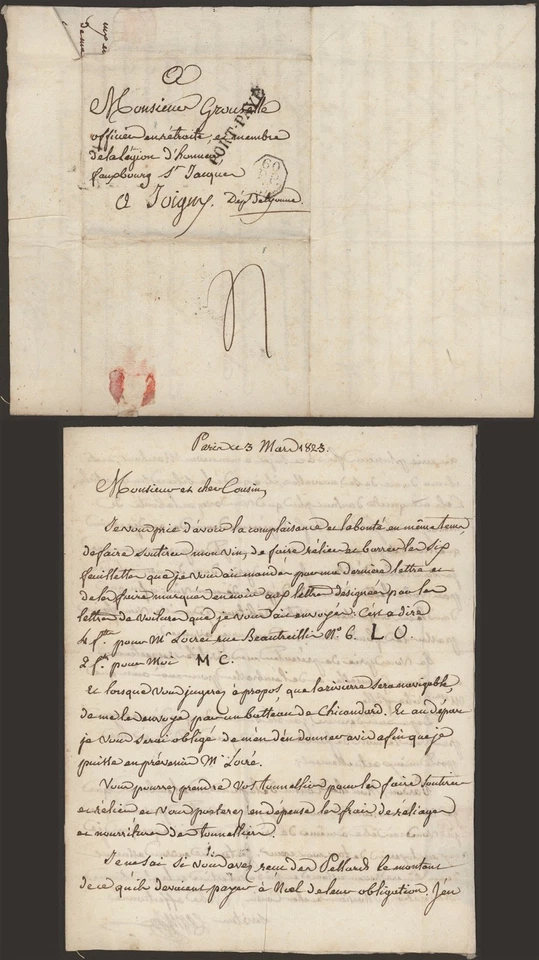 A
Monsieur Grouselle
officier en retraite, et membre
de la Légion d'honneur
fauxbourg St Jacques
A Joigny. Dépt de lyonne
PORT PAYÉ
60
Paris ce 3 Mars 1823.
Monsieur et cher Cousin,
Je vous prie d'avoir la complaisance et la bonté en même tems
de faire soutirer mon vin, de faire rélier et barrer les six
feuillettes que je vous ai mandés par ma derniere lettre et
de les faire marquer en noir aux lettres désignées par les
lettres de voitures que je vous ai envoyées. C'est a dire
4 ftes pour Mr Loiré rue Beautreillis No 6. L O.
2 ftes pour Moi M C.
Et lorsque vous jugerez à propos, que la riviere sera navigable,
de me les envoyer par un batteau de Chicandard. Et au départ
je vous serai obligé de m'en d'en donner avis afin que je
puisse en prévenir Mr Loré.
Vous pourrez prendre vos tonnelliers pour les faire soutirer
et rélier et vous porterez en dépense les frais de réliages
et nourritures des tonnelliers.
Je ne sai si vous avez reçu des Pellards le montant
de ce qu'ils devaient payer à Noel de leur obligation. J'en